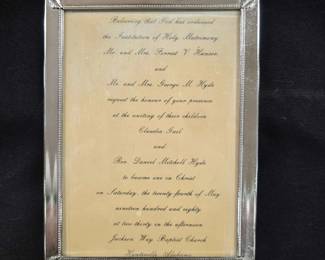 Believing that God has ordained
the Institution of Holy Matrimony
Mr. and Mrs. Forrest V. Hanson
and
Mr. and Mrs. George M. Hyde
request the honour of your presence
at the uniting of their children
Claudia Gail
and
Rev. Daniel Mitchell Hyde
to become one in Christ
on Saturday, the twenty fourth of May
nineteen hundred and eighty
at two thirty in the afternoon
Jackson Way Baptist Church
Huntsville, Alabama